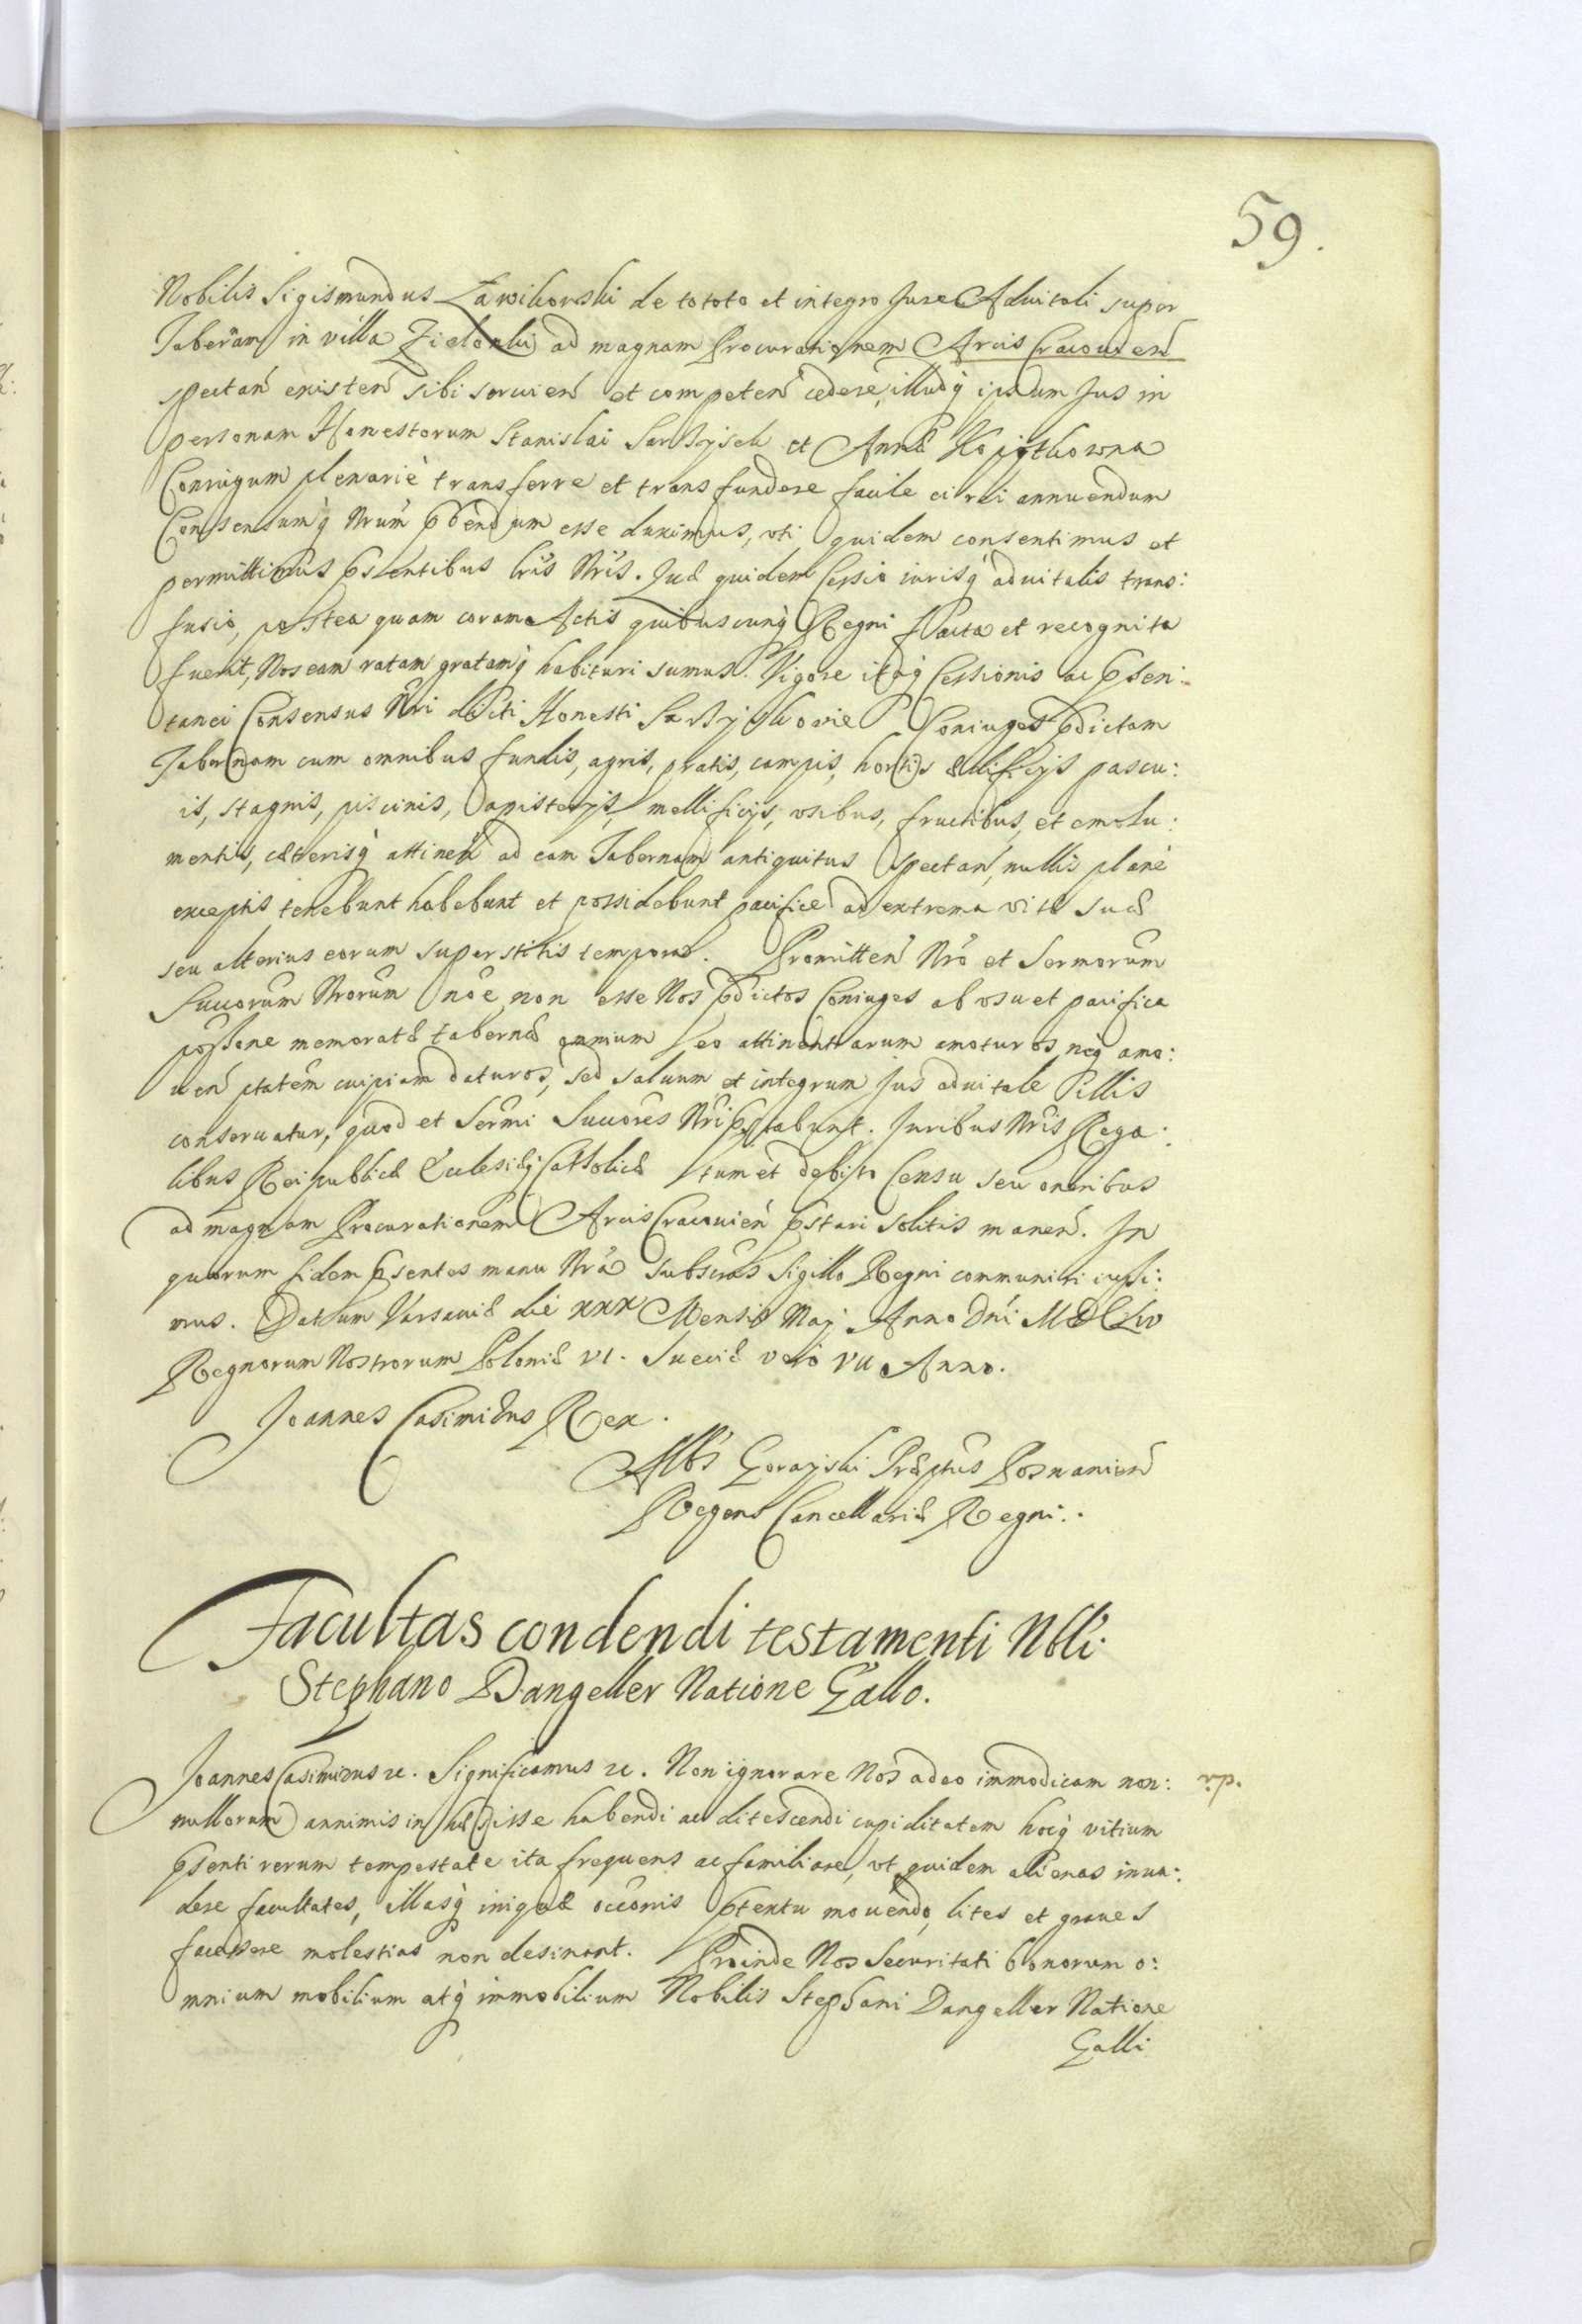 59.
Nobilis Sigismundus Zawikowski de tototo et integro Jure Aduitali super
Taberam in villa Zielonki ad magnam Procurationem Arcis Cracouien
spectan existen sibi seruien et competen cedere, illudq ipsum Jus in
personam Honestorum Stanislai et Annæ
Coniugum plenariè transferre et transfundere facile ei rei annuendum
Consensumq Nrum pbendum esse duximus, vti quidem consentimus et
permittimus pσentibus lris Nris. Quæ quidem Cessio iurisq aduitalis trans:
fusio, postea quam coram Actis quibuscunq Regni facta et recognita
fuerit, Nos eam ratam gratamq habituri sumus. Vigore itaq Cessionis ac psen:
tanei Consensus Nri dicti Honesti Coniuges pdictam
Tabernam cum omnibus fundis, agris, pratis, campis, hortis ædificijs pascu:
is, stagnis, piscinis, apisterijs, mellificijs, vsibus, fructibus, et emolu:
mentis, cæterisq attinen ad eam Tabernam antiquitus spectan, nullis planè
exceptis tenebunt habebunt et possidebunt pacificè ad extrema vitæ suæ
seu alterius eorum superstitis tempora. Promitten Nro et Sermorum
Succorum Nrorum noe non esse Nos pdictos Coniuges ab vsu et pacifica
possone memoratæ tabernæ omnium eo attinentiarum amoturos neq amo:
uen ptatem cuipiam daturos, sed saluum et integrum Jus aduitale illis
conseruatur, quod et Sermi Succores Nri pstabunt. Juribus Nris Rega:
libus Reipublicæ Ecclesiæq Catholicæ tum et debito Censu seu oneribus
ad magnam Procurationem Arcis Cracouien pstari solitis manen. In
quorum fidem psentes manu Nra subscras Sigillo Regni communiri iussi:
mus. Datum Varsauiæ die xxx Mensis Maij Anno Dni MDCLiv
Regnorum Nostrorum Poloniæ vi. Sueciæ verò vii Anno.
Joannes Casimirus Rex.
Albs Gorayski Præptus Posnanien
Regens Cancellariæ Regni.
Facultas condendi testamenti Nbli
Stephano Dangeller Natione Gallo.
Joannes Casimirus rc. Significamus rc. Non ignorare Nos adeo immodicam non: r.p.
nullorum annimis inhæsisse habendi ac ditescendi cupiditatem hocq vitium
psenti rerum tempestate ita frequens ac familiare, vt quidem alienas inua:
dere facultates, illasq iniquæ occonis ptextu mouendo, lites et graues
facessere molestias non desinant. Proinde Nos Securitati bonorum o:
mnium mobilium atq immobilium Nobilis Stephani Dangeller Natione
Galli